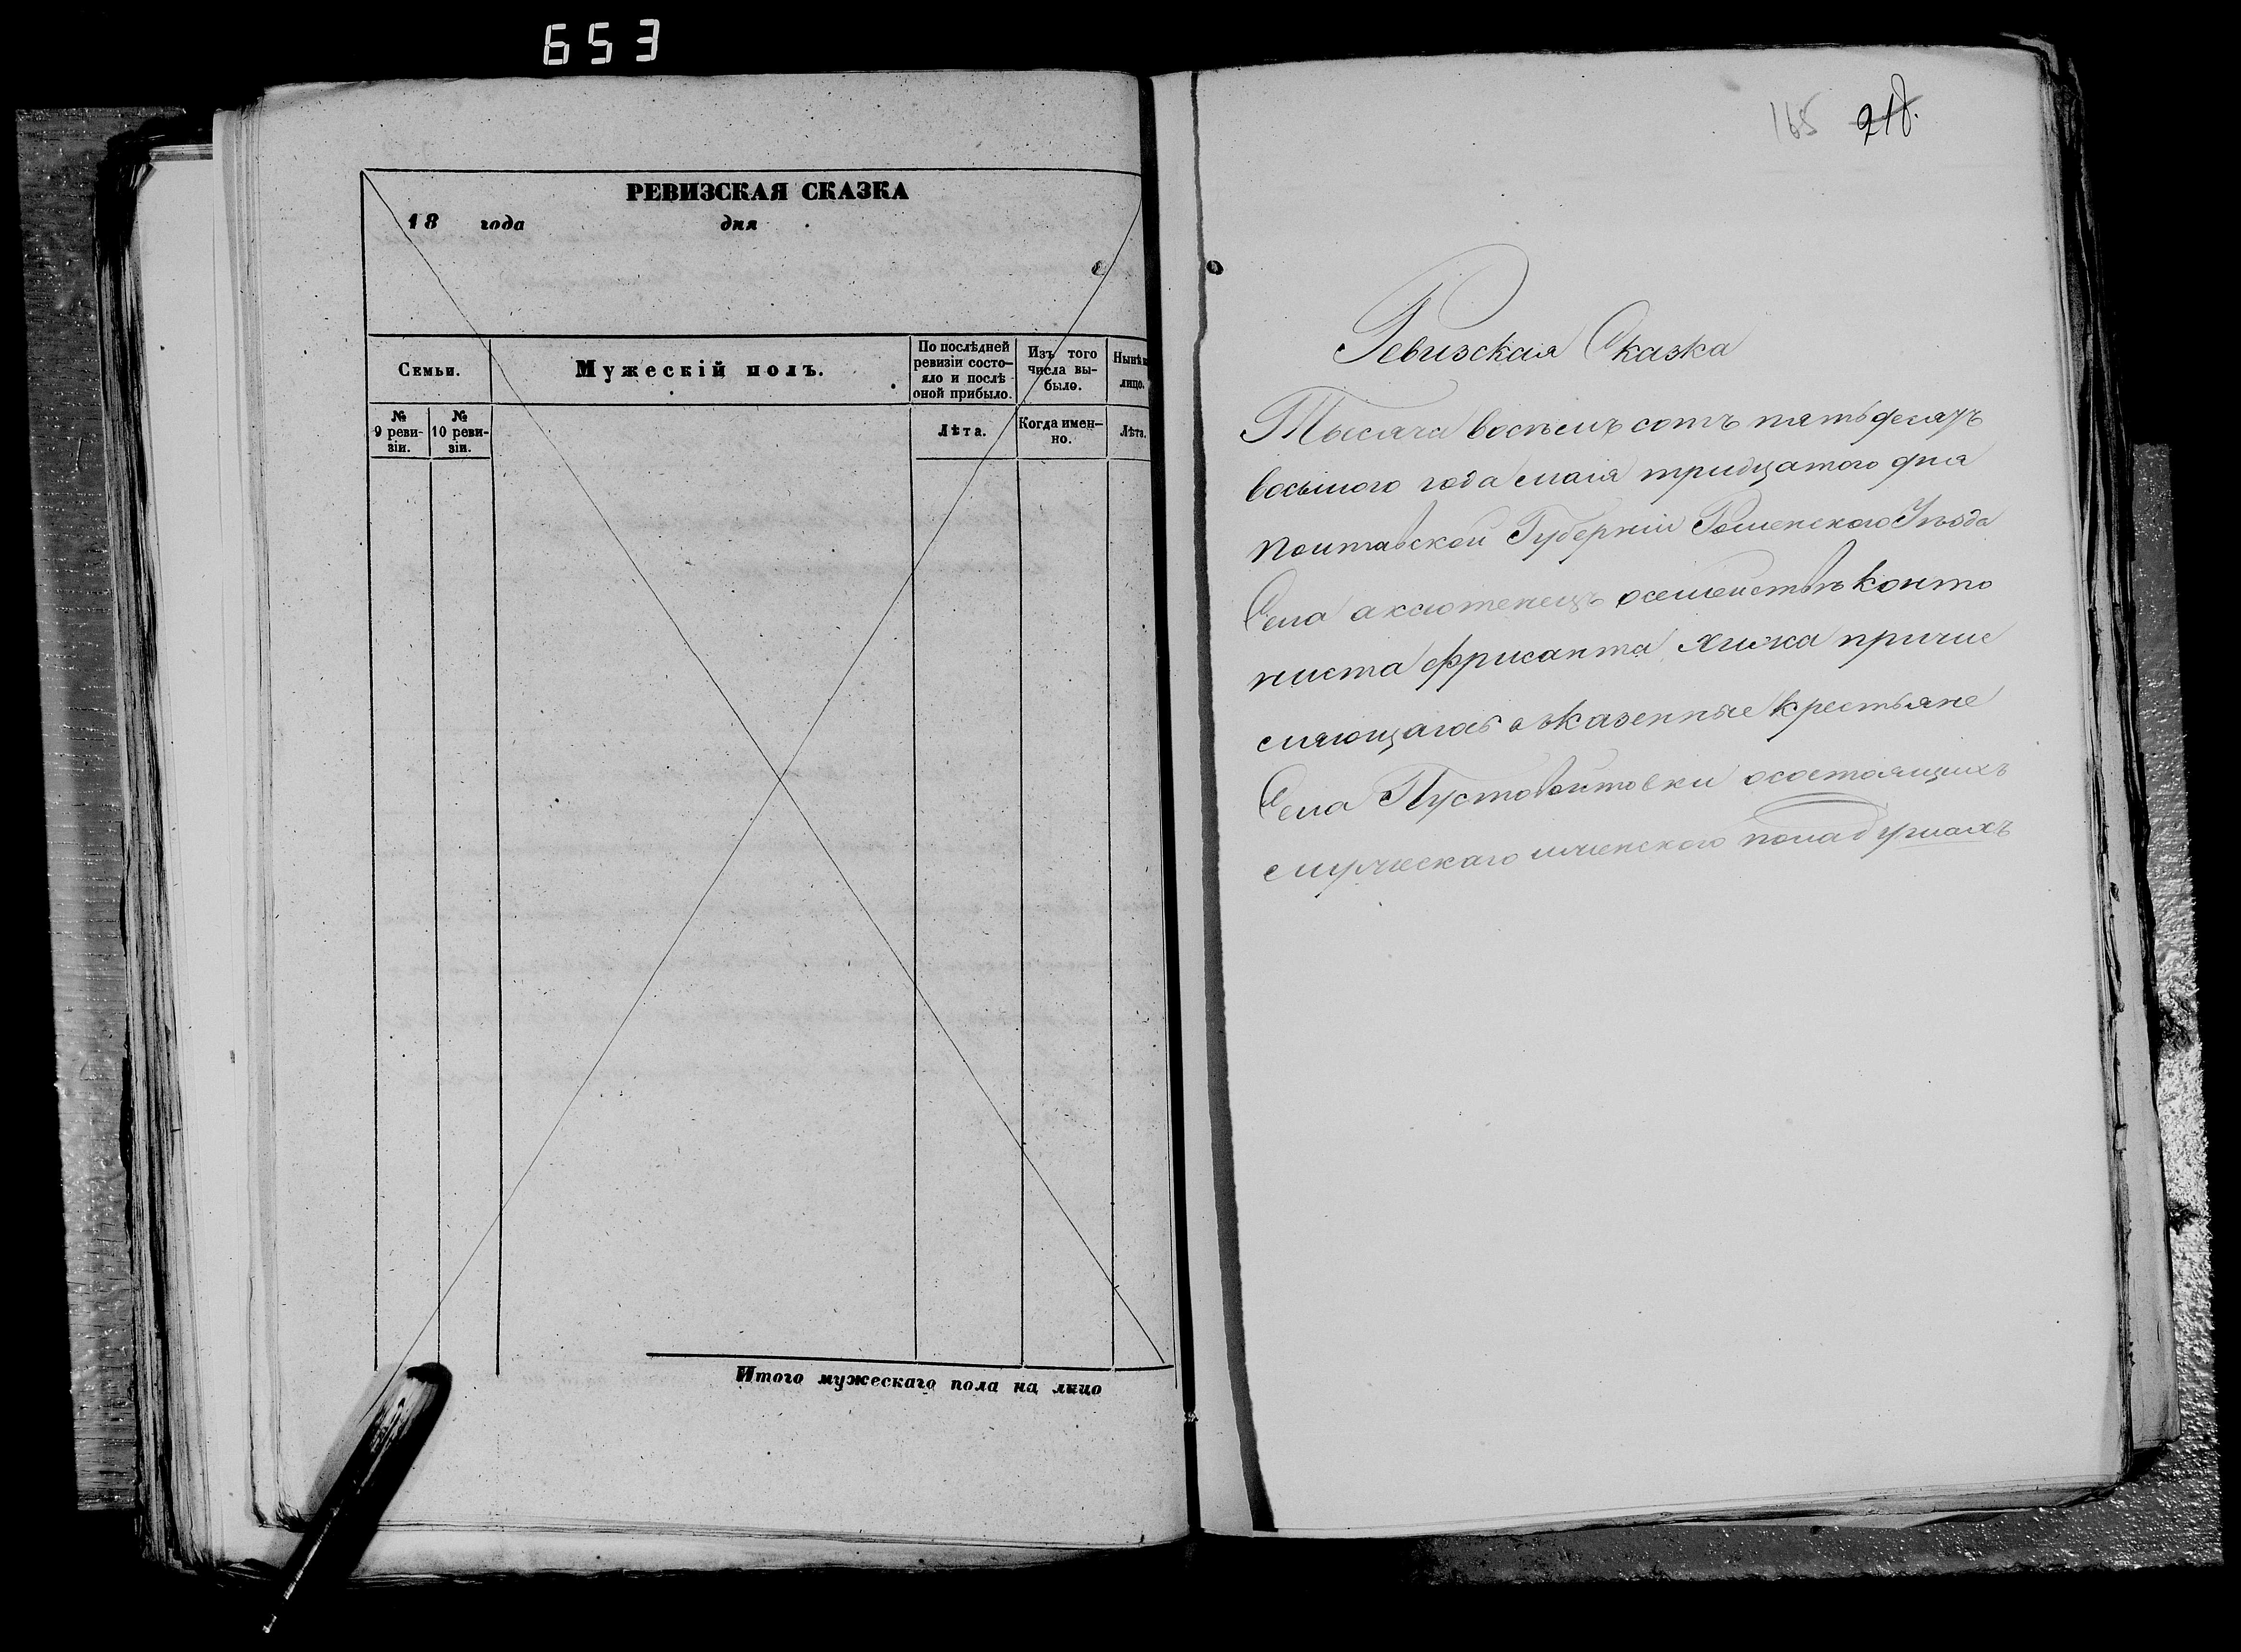 653
РЕВИЗСКАЯ СКАЗКА
18 года дня
Семьи.
Мужескій полъ.
По послѣдней ревизіи состо-
яло и послѣ
оной прибыло.
Изъ того
числа вы-
было.
Нынѣ
лицо.
№
9 реви-
зіи.
№
10 реви-
зіи.
Лѣта.
Когда имен-
но.
Лѣта.
Итого мужескаго пола на лицо
165 218.
Ревизская Сказка
Тысяча восѣемь сотъ пятьдесятъ
восьмого года маія тридцатого дня
Полтавской Губерніи Роменского Уѣзда
Села осемействѣ конто
ниста причис
ляющагось вказенные крестьяне
Села Пустовойтовки осостоящихъ
мужескаго иженского пола душахъ